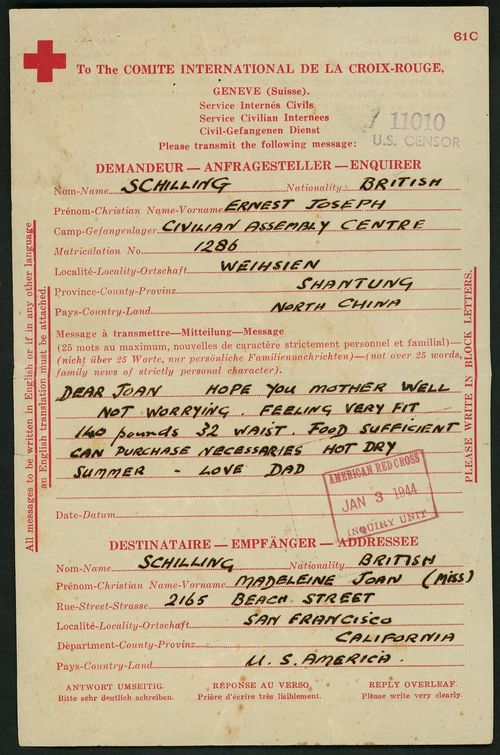 61C
To The COMITE INTERNATIONAL DE LA CROIX-ROUGE,
GENEVE (Suisse).
Service Internés Civils
Service Civilian Internees
Civil-Gefangenen Dienst
Please transmit the following message:
11010
U.S. CENSOR
DEMANDEUR — ANFRAGESTELLER — ENQUIRER
Nom-Name SCHILLING Nationality BRITISH
Prénom-Christian Name-Vorname ERNEST JOSEPH
Camp-Gefangenlager CIVILIAN ASSEMBLY CENTRE
Matriculation No. 1286
Localité-Locality-Ortschaft WEIHSIEN
Province-County-Provinz SHANTUNG
Pays-Country-Land NORTH CHINA
Message à transmettre—Mitteilung—Message
(25 mots au maximum, nouvelles de caractère strictement personnel et familial)—
(nicht über 25 Worte, nur persönliche Familiennachrichten)—(not over 25 words,
family news of strictly personal character).
DEAR JOAN HOPE YOU MOTHER WELL
NOT WORRYING. FEELING VERY FIT
140 pounds 32 WAIST. FOOD SUFFICIENT
CAN PURCHASE NECESSARIES HOT DRY
SUMMER - LOVE DAD
AMERICAN RED CROSS
JAN 3 1944
INQUIRY UNIT
Date-Datum
All messages to be written in English or if in any other language
an English translation must be attached.
PLEASE WRITE IN BLOCK LETTERS.
DESTINATAIRE — EMPFÄNGER — ADDRESSEE
Nom-Name SCHILLING Nationality BRITISH
Prénom-Christian Name-Vorname MADELEINE JOAN (MISS)
Rue-Street-Strasse 2165 BEACH STREET
Localité-Locality-Ortschaft SAN FRANCISCO
Département-County-Provinz CALIFORNIA
Pays-Country-Land U.S. AMERICA.
ANTWORT UMSEITIG. RÉPONSE AU VERSO. REPLY OVERLEAF.
Bitte sehr deutlich schreiben. Prière d'écrire très lisiblement. Please write very clearly.